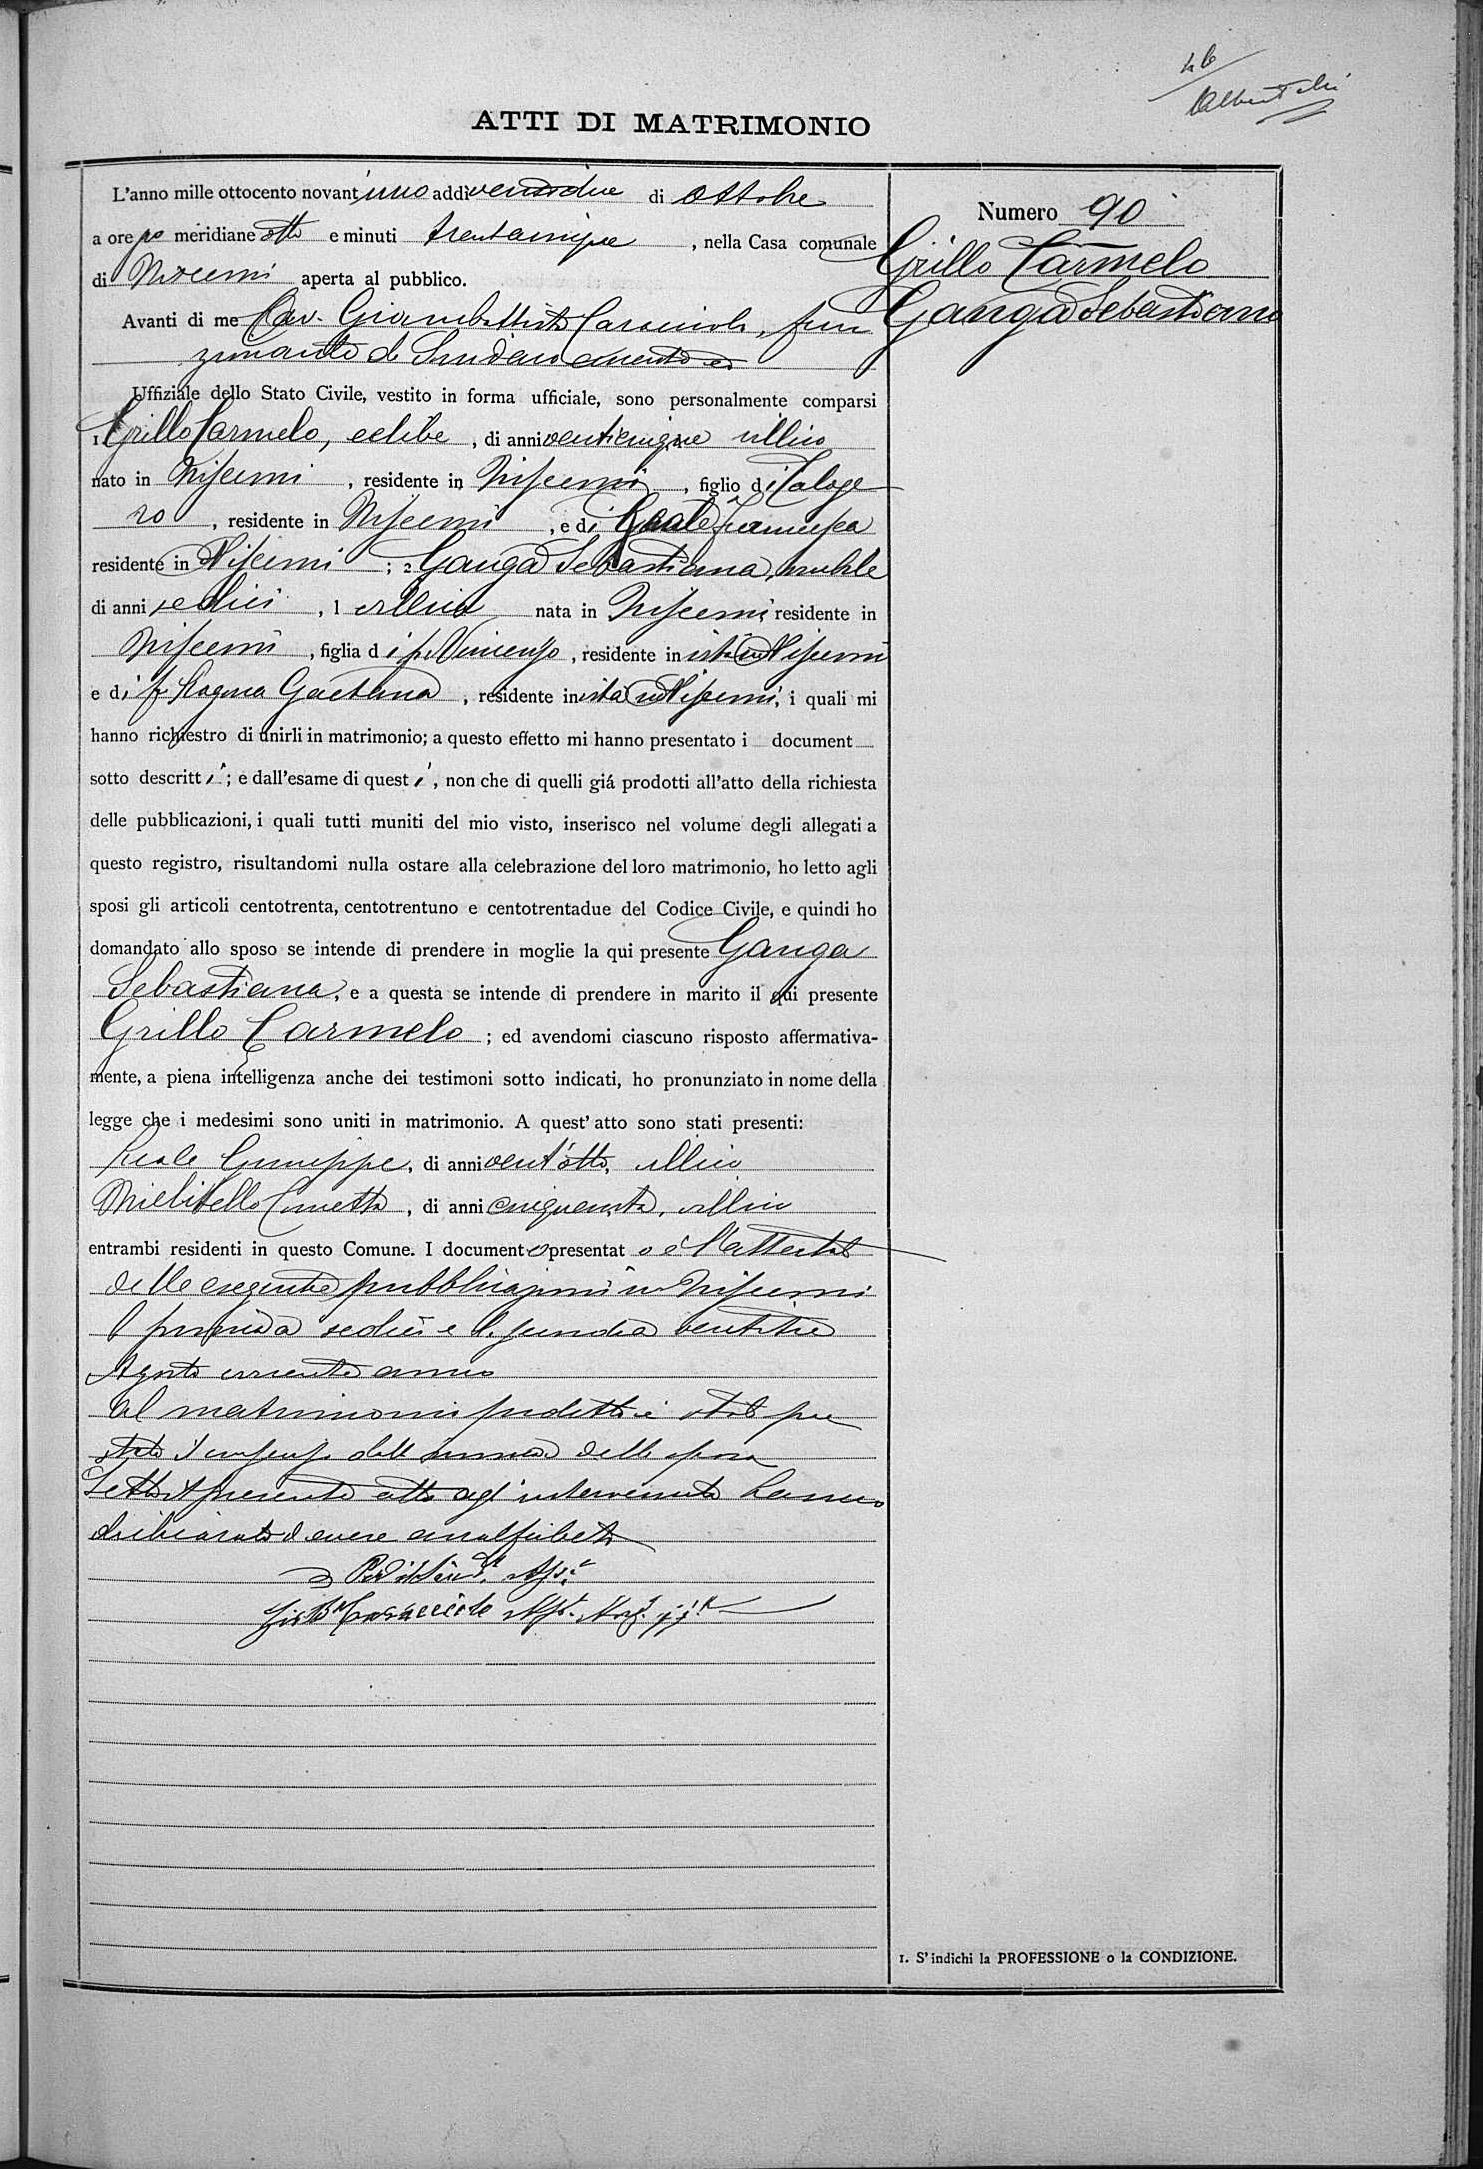 ATTI DI MATRIMONIO
L'anno mille ottocento novant'uno addì ventidue di Ottobre
a ore po meridiane otto e minuti trentacinque, nella Casa comunale
di Niscemi aperta al pubblico.
Avanti di me Cav. Giambattista Caracciolo, fun
zionante da Sindaco
Uffiziale dello Stato Civile, vestito in forma ufficiale, sono personalmente comparsi
1. Grillo Carmelo, celibe, di anni venticinque villico
nato in Niscemi, residente in Niscemi, figlio di Caloge
ro, residente in Niscemi, e di Reale Francesca
residente in Niscemi; 2. Ganga Sebastiana, nubile
di anni sedici, 1 villica nata in Niscemi, residente in
Niscemi, figlia di fu Vincenzo, residente in vita in Niscemi
e di fu Ragusa Gaetana, residente in vita in Niscemi, i quali mi
hanno richiestro di unirli in matrimonio; a questo effetto mi hanno presentato i document
sotto descritti; e dall'esame di questi, non che di quelli giá prodotti all'atto della richiesta
delle pubblicazioni, i quali tutti muniti del mio visto, inserisco nel volume degli allegati a
questo registro, risultandomi nulla ostare alla celebrazione del loro matrimonio, ho letto agli
sposi gli articoli centotrenta, centotrentuno e centotrentadue del Codice Civile, e quindi ho
domandato allo sposo se intende di prendere in moglie la qui presente Ganga
Sebastiana, e a questa se intende di prendere in marito il qui presente
Grillo Carmelo; ed avendomi ciascuno risposto affermativa-
mente, a piena intelligenza anche dei testimoni sotto indicati, ho pronunziato in nome della
legge che i medesimi sono uniti in matrimonio. A quest' atto sono stati presenti:
Reale Giuseppe, di anni vent'otto, villico
di anni cinquanta, villico
entrambi residenti in questo Comune. I documento presentato è l'attestato
delle eseguite pubblicazioni in Niscemi
la prima a sedici e la seconda ventitre
Agosto corrente anno
Al matrimonio predetto è stato pre
stato il consenso della nonna della sposa
Letto il presente atto agl'intervenuti hanno
dichiarato d'essere analfabeti
Pel Sind. Ass.
Gio Bta Caracciolo Ass.
Numero 90
Grillo Carmelo
Ganga Sebastiana
1. S'indichi la PROFESSIONE o la CONDIZIONE.